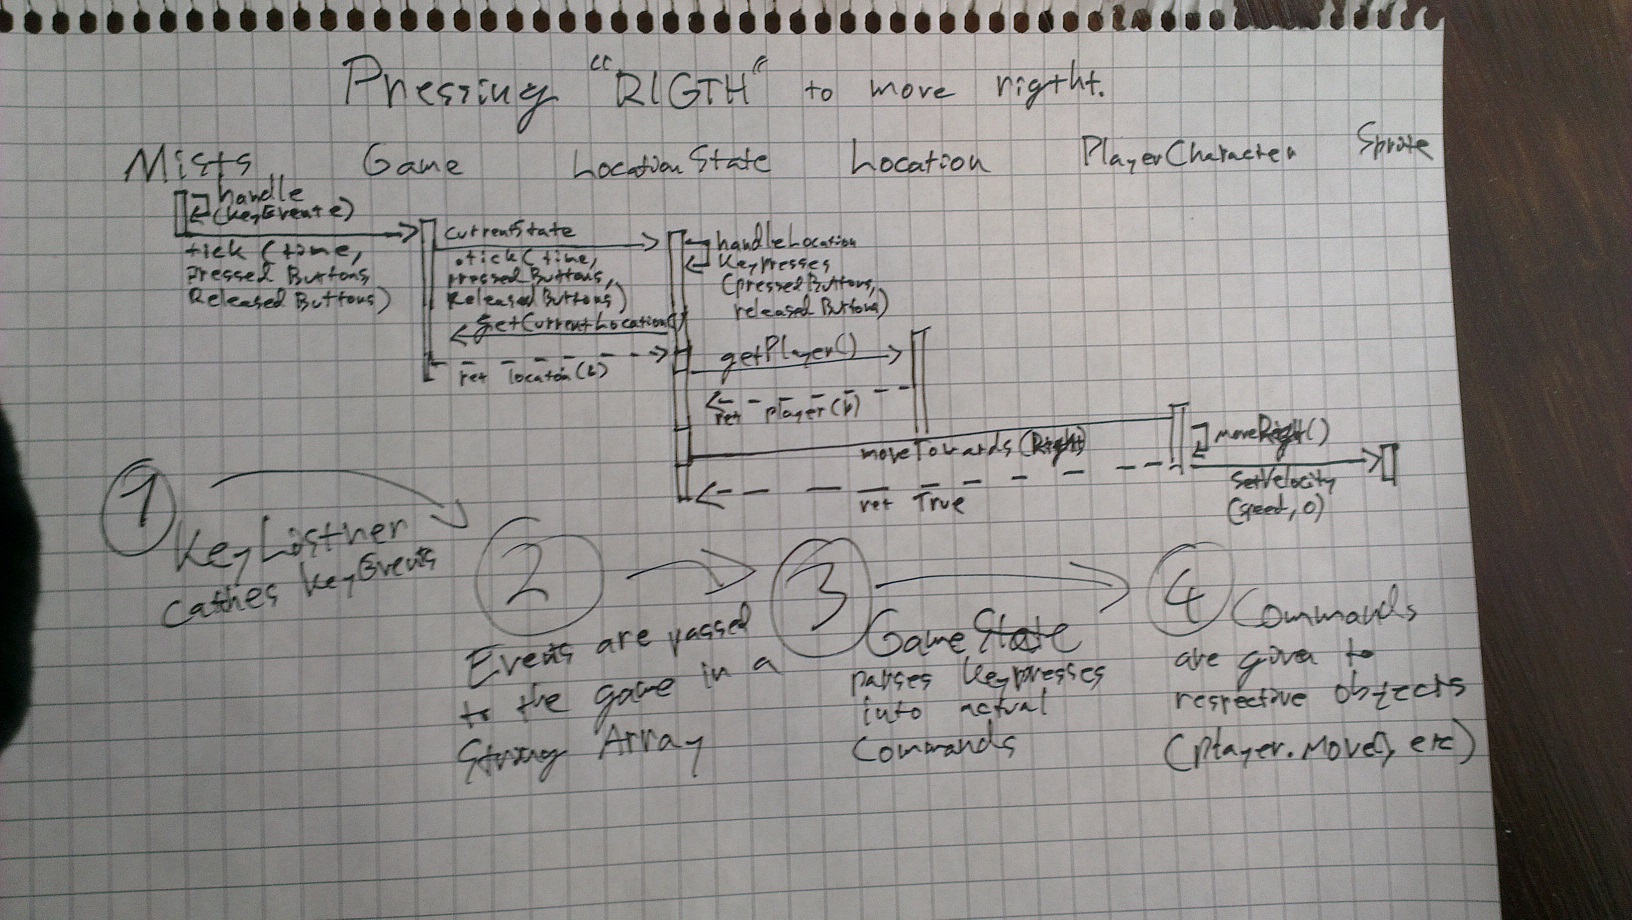 Pressing "RIGTH" to move rigtht.
Mists Game LocationState Location PlayerCharacter Sprite
handle
(KeyEvent e)
tick (time,
Pressed Buttons
Released Buttons)
currentState
.tick (time,
pressed Buttons,
Released Buttons)
getCurrentLocation()
ret location(L)
handleLocation
Keypresses
(pressedButtons,
released Buttons)
getPlayer()
ret player(P)
moveTowards (Right)
ret True
moveRight()
SetVelocity
(speed, 0)
1
KeyListner
cathes KeyEvents
2
Events are passed
to the game in a
String Array
3
GameState
parses Keypresses
into actual
Commands
4 Commands
are given to
respective objects
(player.Move(), etc)